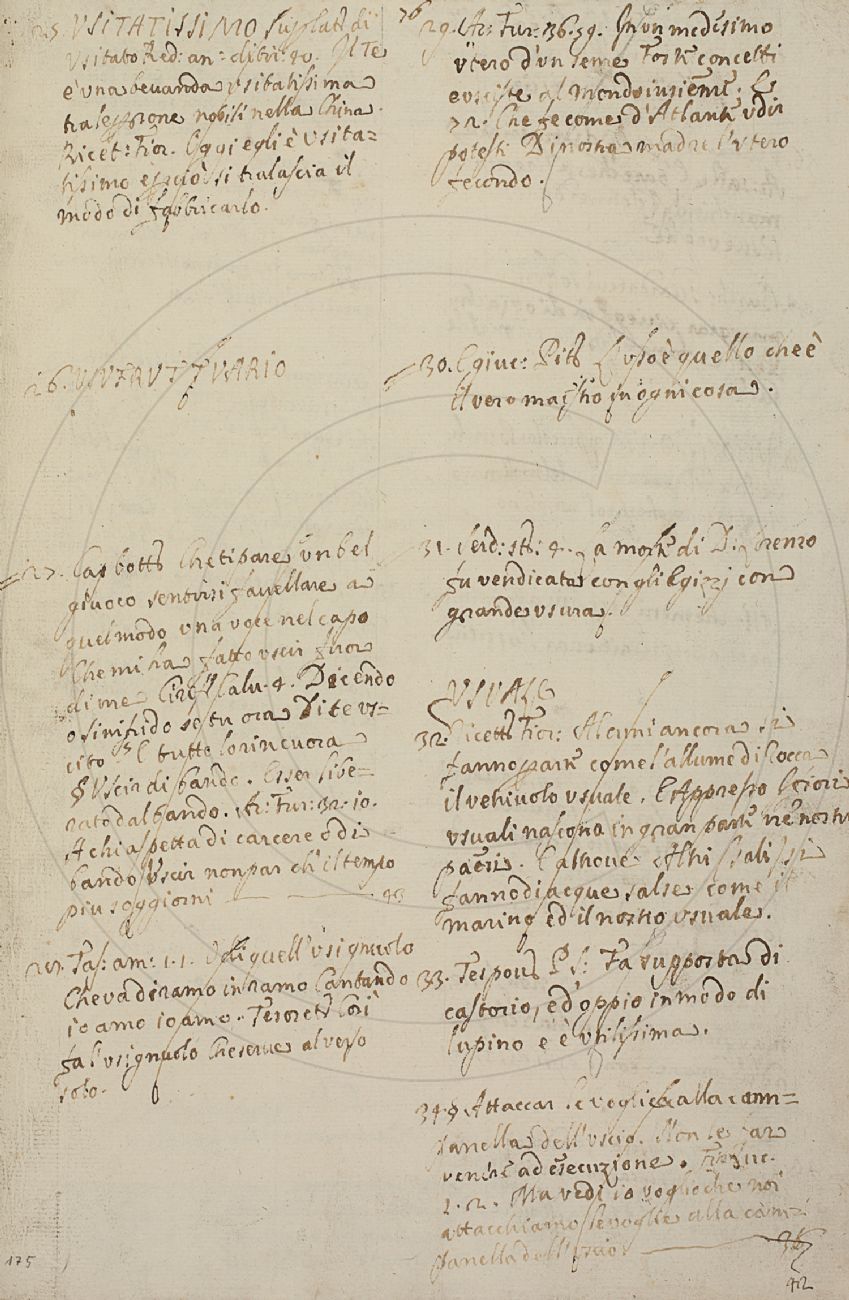 25. VSITATISSIMO Superlat: di
Vsitato Red: an: ditir: 40. Il Tè
è una bevanda usitatissima
tra le persone nobili nella China.
Ricet: Fior. Oggi egli è usita=
tissimo e perciò si tralascia il
modo di fabbricarlo.
26. VSVFRVTTVARIO
27. Che ti pare un bel
giuoco sentirsi favellare a
quel modo una voce nel capo
Che mi ha fatto uscir fuor
di me Calu. 4. Dicendo
o sinifrido se tu ora Dite us=
cito E tutto lo rincuora
§ Uscir di bando. Esser libe=
rato dal bando. Ar: Fur: 32. 10.
A chi aspetta di carcere o di
bando Uscir non par ch'il tempo
piu soggiorni
28. Tas: am: 1. 1. Odi quell'usignuolo
Che va di ramo in ramo Cantando
io amo io amo. Tesorett: Così
fa l'usignuolo Che serve al verso
solo.
175
76
29. Ar: Fur: 36. 59. In un medesimo
Utero d'un seme Foste concetti
e usciste al Mondo insieme. E
72. Che se come d'Atlante udir
poteste Di nostra madre l'utero
fecondo.
30. L'uso è quello che è
il vero mastro in ogni cosa.
31. La morte di D. Lorenzo
fu vendicata con gli Egizzj con
grande usura.
VSVALE
32. Ricett: Fior: Alcuni ancora si
fanno parte come l'allume di Rocca
il vetriuolo usuale. E Appresso
usuali nascono in gran parte ne nostri
paesi. E altrove Altri sali si
fanno di acque salse come il
marino ed il nostro usuale.
33. Tes: pov: P. S: Fa supposta di
castorio, ed oppio in modo di
lupino e è utilissima.
34. § Attaccar le voglie alla cam=
panella dell'uscio. Non le far
venire ad esecuzione.
1. 2. Ma vedi io voglio che noi
attacchiamo le voglie alla cam=
panella dell'uscio.
36
42